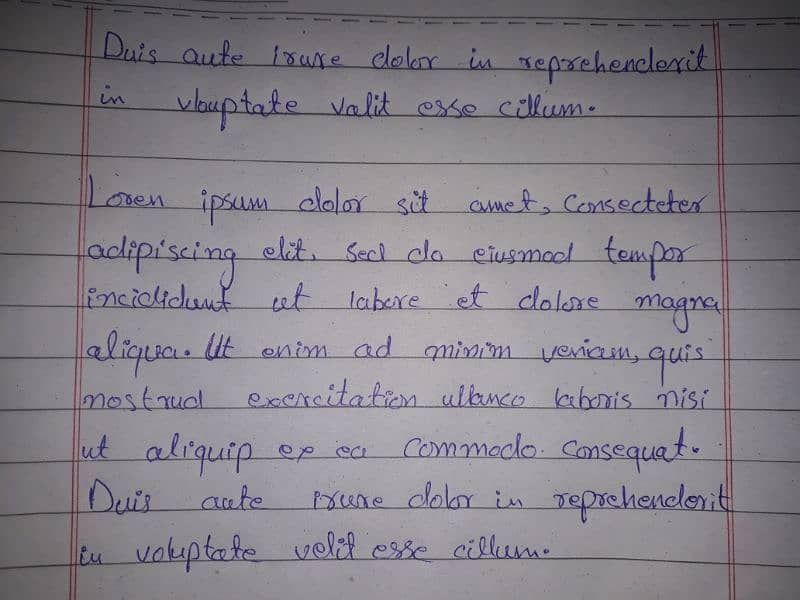 Duis aute irure dolor in reprehenderit
in vlouptate valit esse cillum.
Loren ipsum dolor sit amet, Consecteter
adipiscing elit, Sed do eiusmod tempor
incididunt ut labore et dolore magna
aliqua. Ut enim ad minim veniam, quis
nostrud exercitation ullamco laboris nisi
ut aliquip ex ea Commodo. Consequat.
Duis aute irure dolor in reprehenderit
in voluptate velit esse cillum.